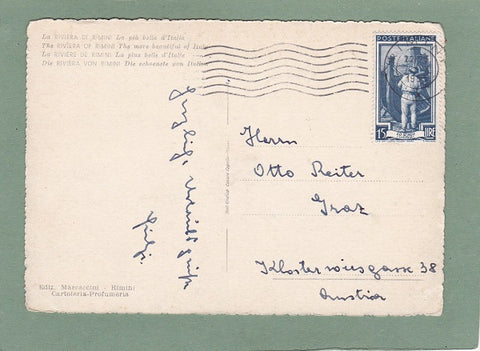 La RIVIERA DI RIMINI La più bella d'Italia
The RIVIERA OF RIMINI The more beautiful of Italy
La RIVIÈRE DE RIMINI La plus belle d'Italie
Die RIVIERA VON RIMINI Die schoenste von Italien
POSTE ITALIANE
15 LIRE
Herrn
Otto Reiter
Graz
Klosterwiesgasse 38
Austria
Herzliche Urlaubsgrüße
Ediz. Marcaccini - Rimini
Cartoleria-Profumeria